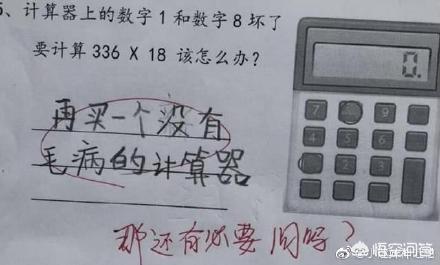 5、计算器上的数字1和数字8坏了
要计算 336 X 18 该怎么办?
0.
7 9
4 5 6
2 3
再买一个没有
毛病的计算器
那还有必要问吗?
悟空问答